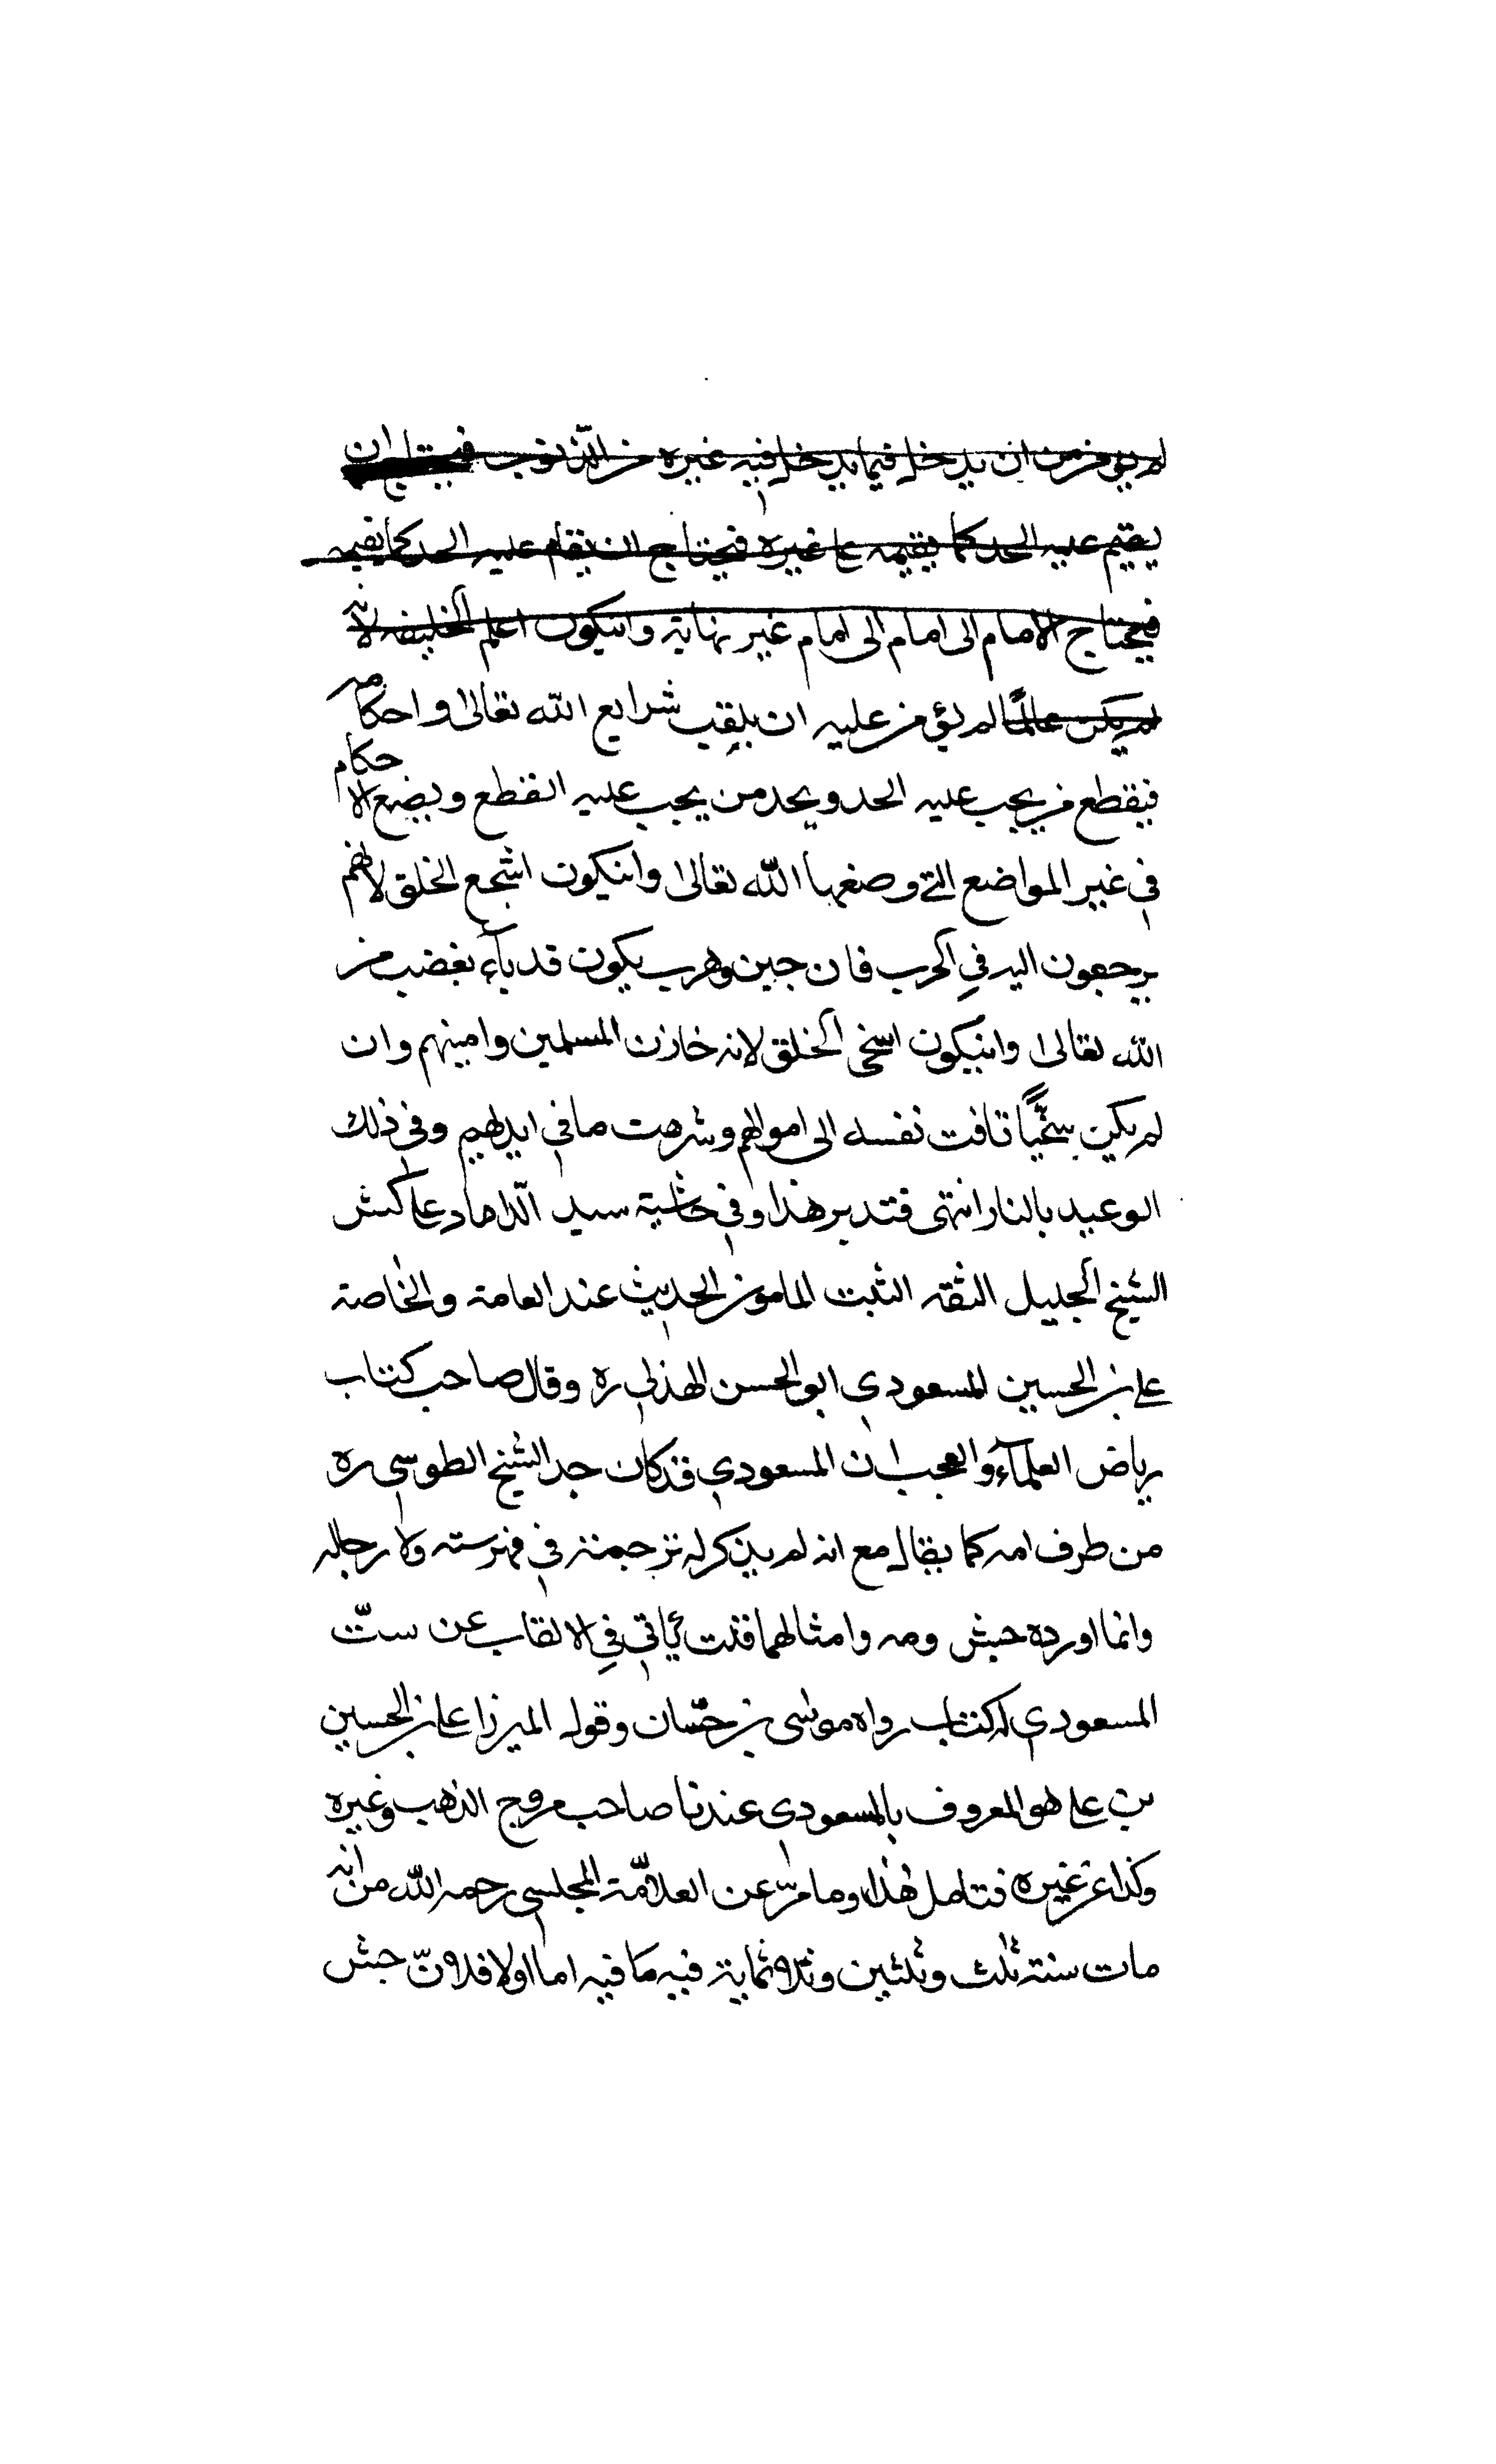 لم يؤمن من ان يدخل فيما يدخل فيه غيره من الذنوب فيحتاج ان
يقيم عليه الحد كما يقيمه على غيره فيحتاج ان يقام عليه الحد كما يقيمه
فيحتاج الامام الى امام الى امام غير نهاية وان يكون اعلم الخليفه لانه
لم يكن عالمًا لم يؤمن عليه ان يلقب شرايع الله تعالى واحكامه
فيقطع من يجب عليه الحد ويحد من يجب عليه القطع ويضع الاحكام
في غير المواضع التي وضعها الله تعالى وان يكون اشجع الخلق لانهم
يرجعون اليه في الحرب فان جبن وهرب يكون قد بآء بغضب من
الله تعالى وان يكون اسخى الخلق لانه خازن المسلمين وامينهم وان
لم يكن سخيًّا تافت نفسه الى اموالهم وشرهت ما في ايديهم وفي ذلك
الوعيد بالنار انتهى فتدبر هذا وفي حاشية سيد الداماد على كش
الشيخ الجليل الثقه الثبت المامون الحديث عند العامة والخاصة
على بن الحسين المسعودي ابو الحسن الهذلي ره وقال صاحب كتاب
رياض العلمآء والعجب ان المسعودي قد كان جد الشيخ الطوسي ره
من طرف امه كما يقال مع انه لم يذكر له ترجمة في فهرسته ولا رجاله
وانما اورده جش ومه وامثالهما قلت ياتي في الالقاب عن ست
المسعودي له كتاب رواه موسى بن حسّان وقوله الميرزا على بن الحسين
بن على هو المعروف بالمسعودي عندنا صاحب مروج الذهب وغيره
وكذا عن غيره فتامل هذا وما مرّ عن العلامّة المجلسي رحمه الله من انه
مات سنة ثلث وثلثين وثلاثماية فيه ما فيه اما اولا فلانّ جش